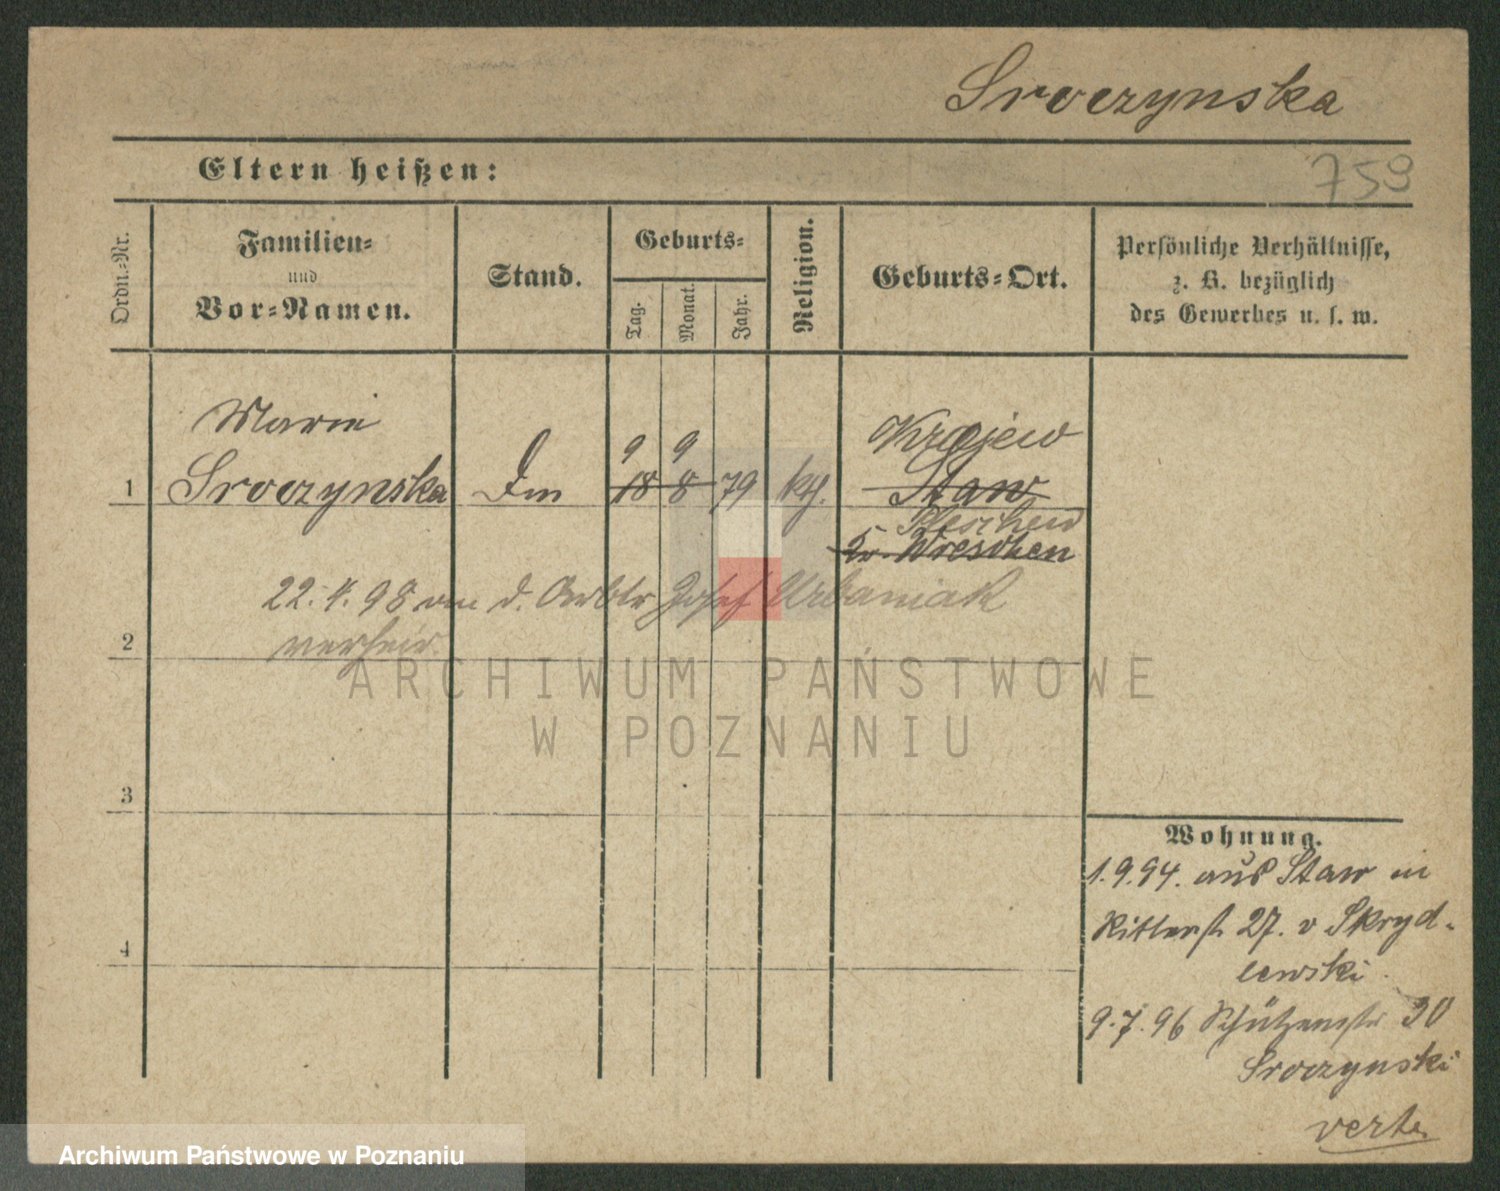 Sroczynska
Eltern heißen:
759
Ordn.-Nr.
Familien-
und
Vor-Namen.
Stand.
Geburts-
Tag.
Monat.
Jahr.
Religion.
Geburts-Ort.
Persönliche Verhältnisse,
z. B. bezüglich
des Gewerbes u. s. w.
Marie
9 9
Krajew
1 Sroczynska 18 8 79 kth. Staw
Pleschen
Kr. Wreschen
22. 4. 98 d. Arbtr Josef Urbaniak
verheir.
2
3
4
Wohnung.
1.9.94. aus Staw in
Ritterst 27. v Skryd-
lewski.
9.7.96 Schützenstr 30
Sroczynski
verte
ARCHIWUM PAŃSTWOWE
W POZNANIU
Archiwum Państwowe w Poznaniu